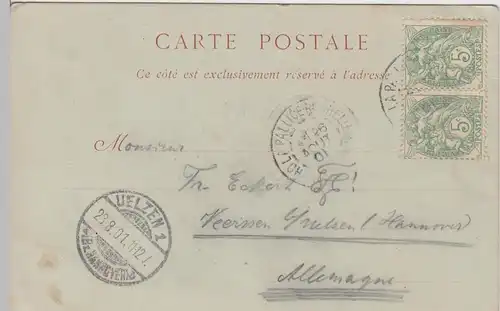 CARTE POSTALE
Ce côté est exclusivement réservé à l'adresse
5
5
LA PALLICE
Monsieur
Fr. Eckert
Veerssen / Uelzen (Hannover)
Allemagne.
UELZEN 1
23.8.01.11-12
(BZ. HANNOVER)